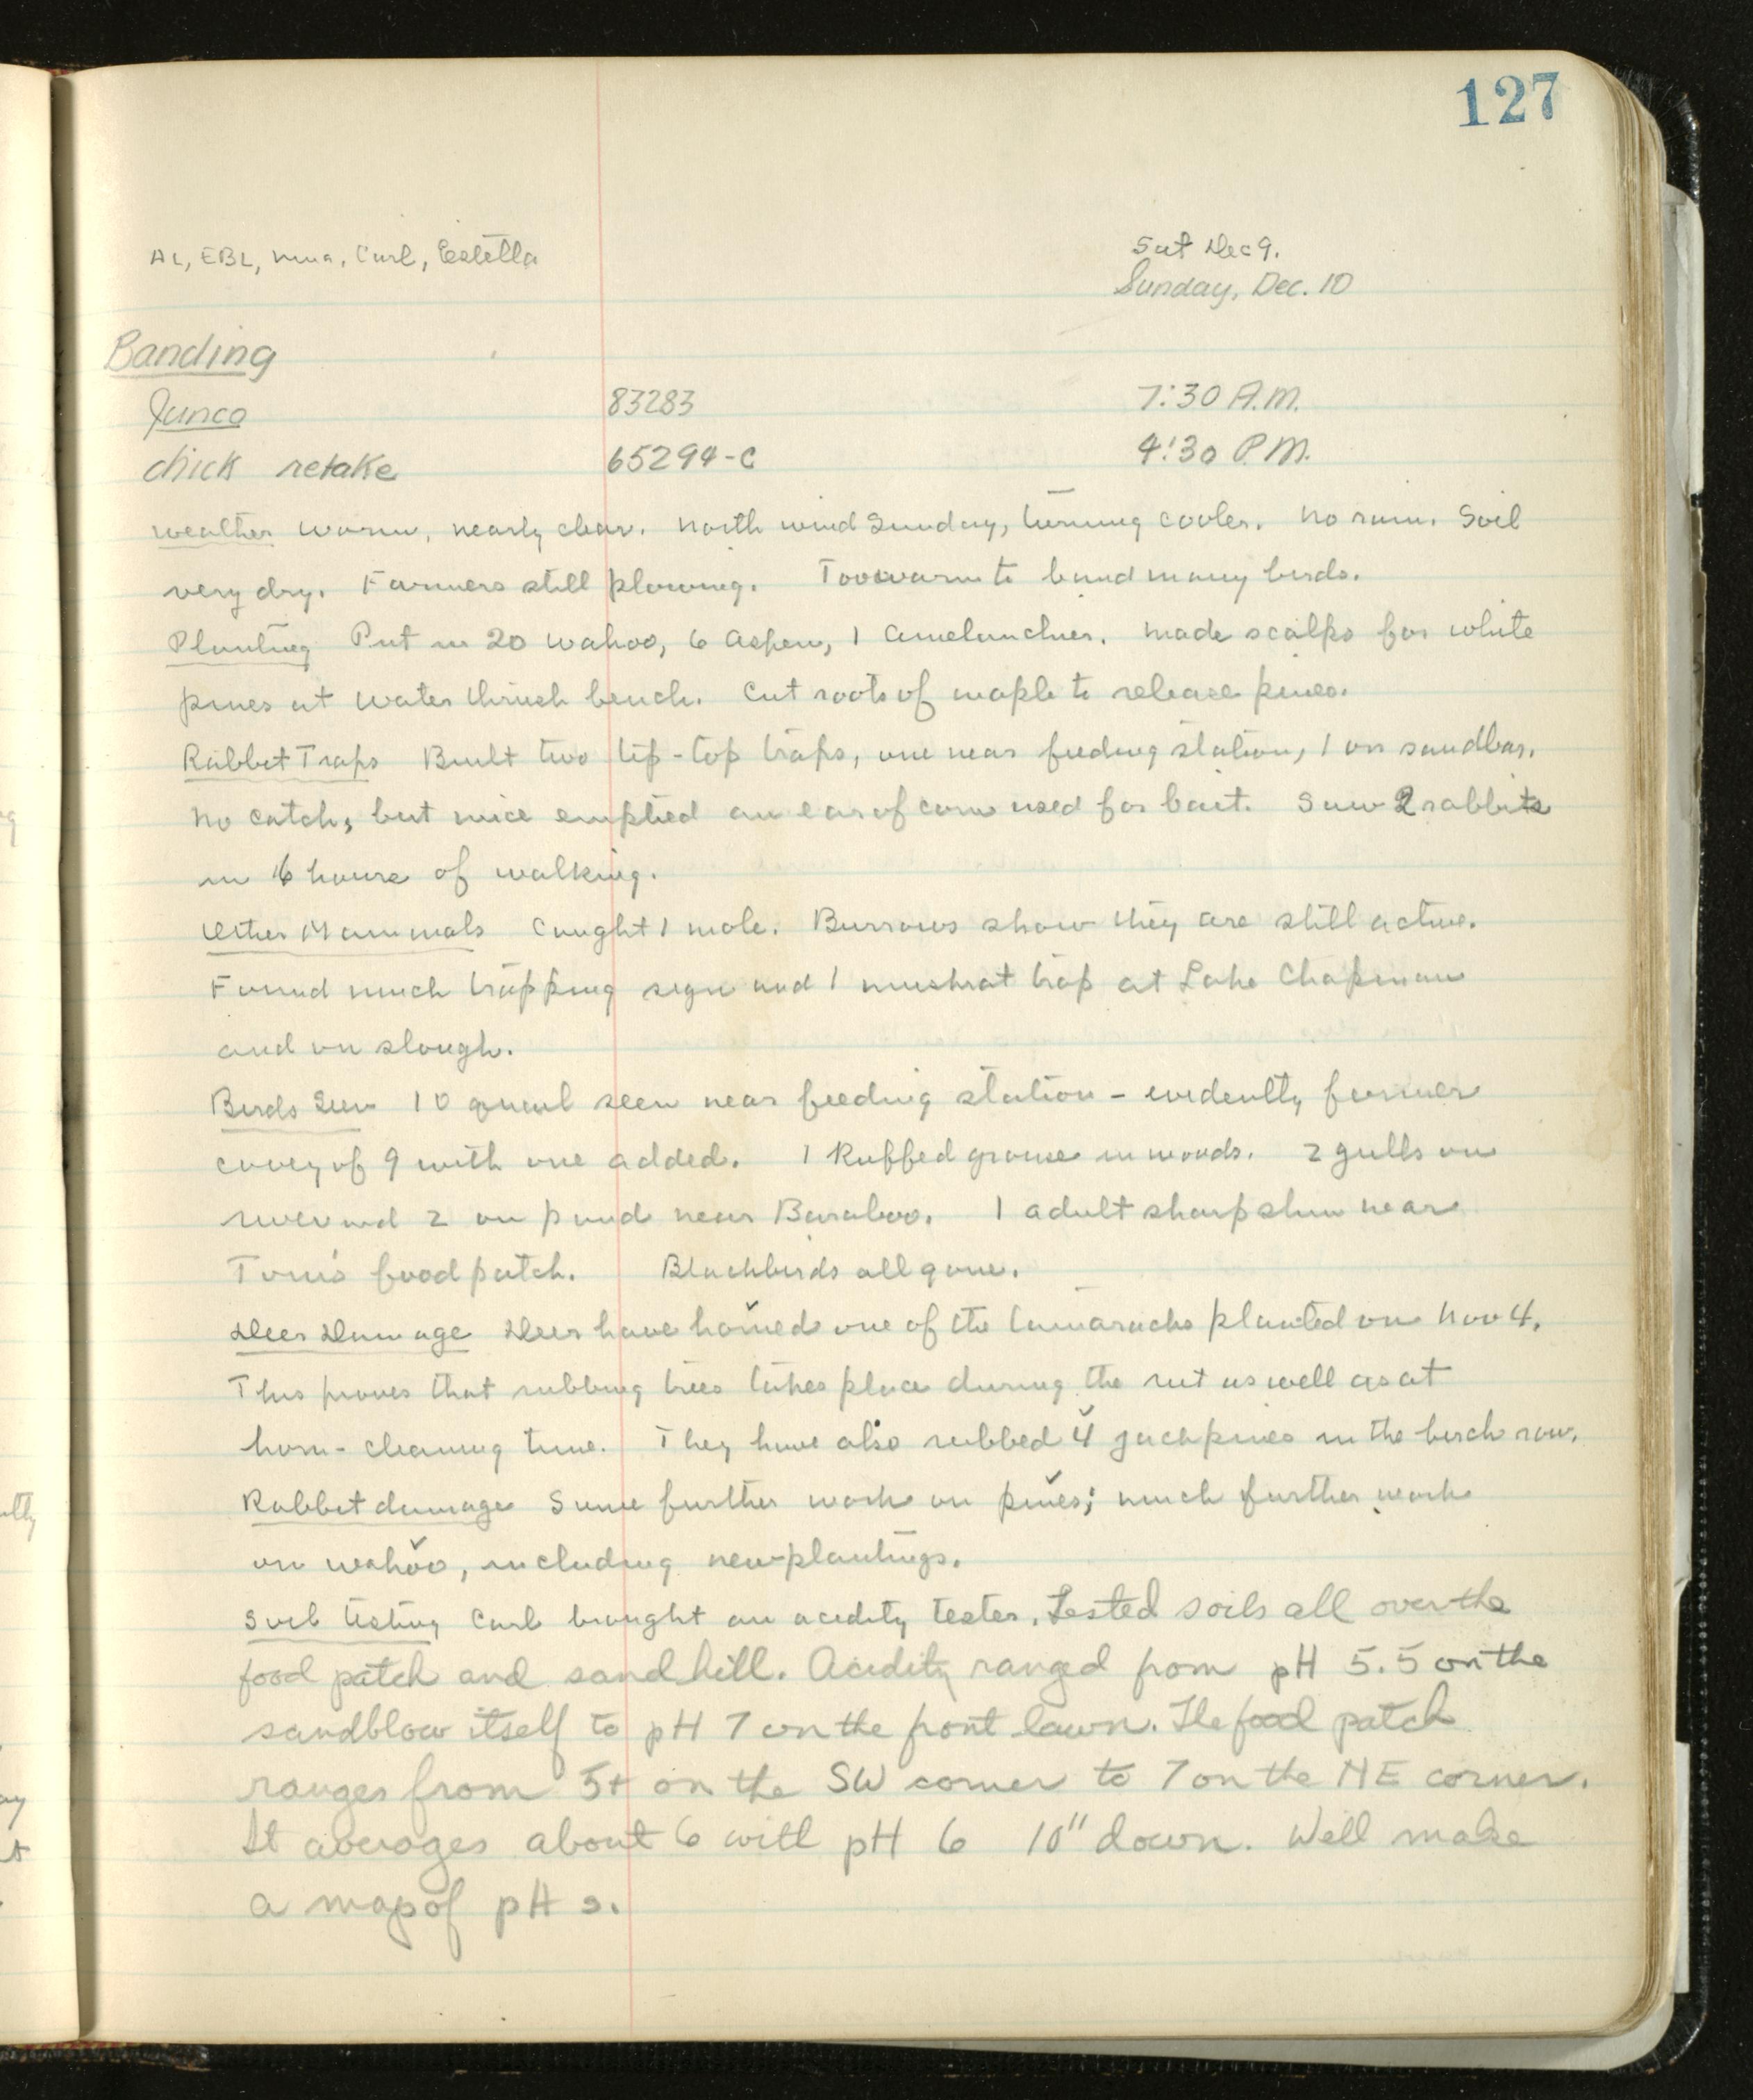 127
AL, EBL, Nina, Carl, Estella
Sat Dec 9.
Sunday, Dec. 10
Banding
Junco 83283 7:30 A.M.
chick retake 65294-C 4:30 P.M.
Weather Warm, nearly clear. North wind Sunday, turning cooler. No rain. Soil
very dry. Farmers still plowing. Too warm to band many birds.
Planting Put in 20 wahoo, 6 aspen, 1 amelanchier. Made scalps for white
pines at water thrush bench. Cut roots of maple to release pines.
Rabbit Traps Built two tip-top traps, one near feeding station, 1 on sandbar.
No catch, but mice emptied an ear of corn used for bait. Saw 2 rabbits
in 6 hours of walking.
Other Mammals Caught 1 mole. Burrows show they are still active.
Found much trapping sign and 1 muskrat trap at Lake Chapman
and on slough.
Birds Seen 10 quail seen near feeding station - evidently former
covey of 9 with one added. 1 Ruffed grouse in woods. 2 gulls on
river and 2 on pond near Baraboo. 1 adult sharpshin near
Tom's food patch. Blackbirds all gone.
Deer Damage Deer have horned one of the tamaracks planted on Nov 4.
This proves that rubbing trees takes place during the rut as well as at
horn-cleaning time. They have also rubbed 4 jackpines in the birch row.
Rabbit damage Some further work on pines; much further work
on wahoo, including new plantings.
Soil testing Carl brought an acidity tester. Tested soils all over the
food patch and sand hill. Acidity ranged from pH 5.5 on the
sandblow itself to pH 7 on the front lawn. The food patch
ranges from 5+ on the SW corner to 7 on the NE corner.
It averages about 6 with pH 6 10" down. Will make
a map of pH s.